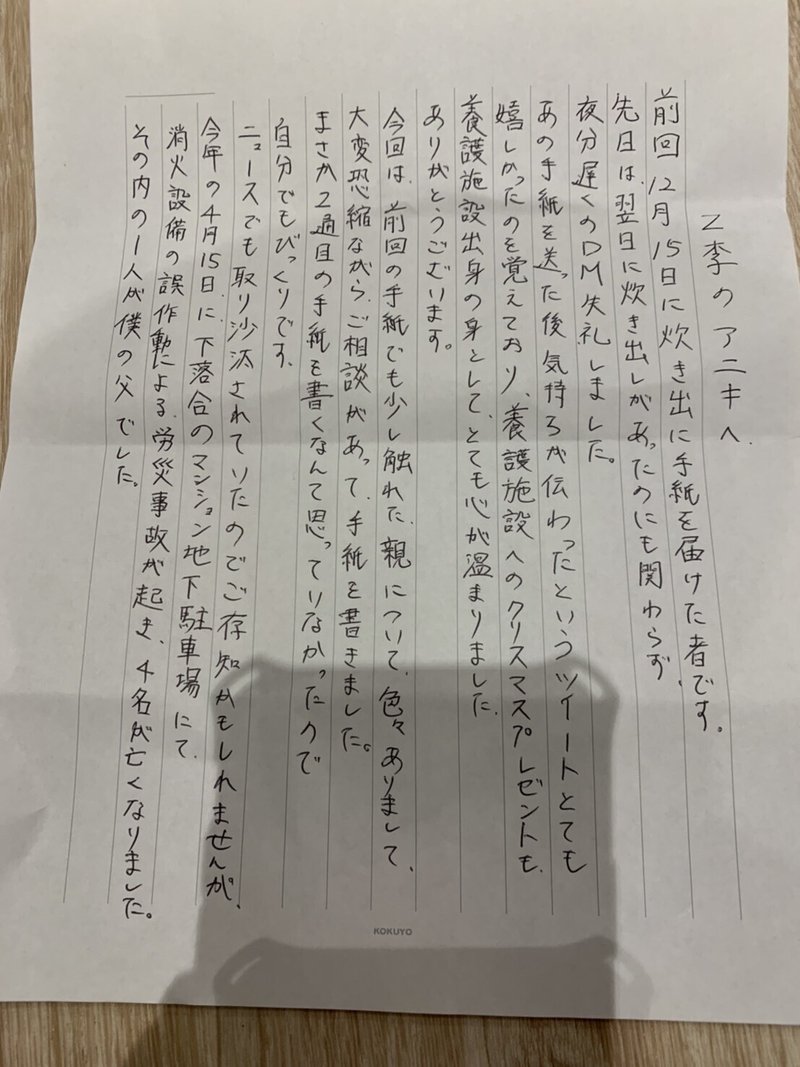 Z李のアニキへ.
前回12月15日に炊き出に手紙を届けた者です。
先日は、翌日に炊き出しがあったのにも関わらず、
夜分遅くのDM失礼しました。
あの手紙を送った後 気持ちが伝わったというツイートとても
嬉しかったのを覚えており、養護施設へのクリスマスプレゼントも、
養護施設出身の身として、とても心が温まりました.
ありがとうございます。
今回は、前回の手紙でも少し触れた、親について、色々ありまして、
大変恐縮ながら、ご相談があって、手紙を書きました。
まさか2通目の手紙を書くなんて思っていなかったので
自分でもびっくりです、
ニュースでも取り沙汰されていたのでご存知かもしれませんが、
今年の4月15日、に下落合のマンション地下駐車場にて、
消火設備の誤作動による、労災事故が起き、4名が亡くなりました。
その内の1人が僕の父でした。
KOKUYO